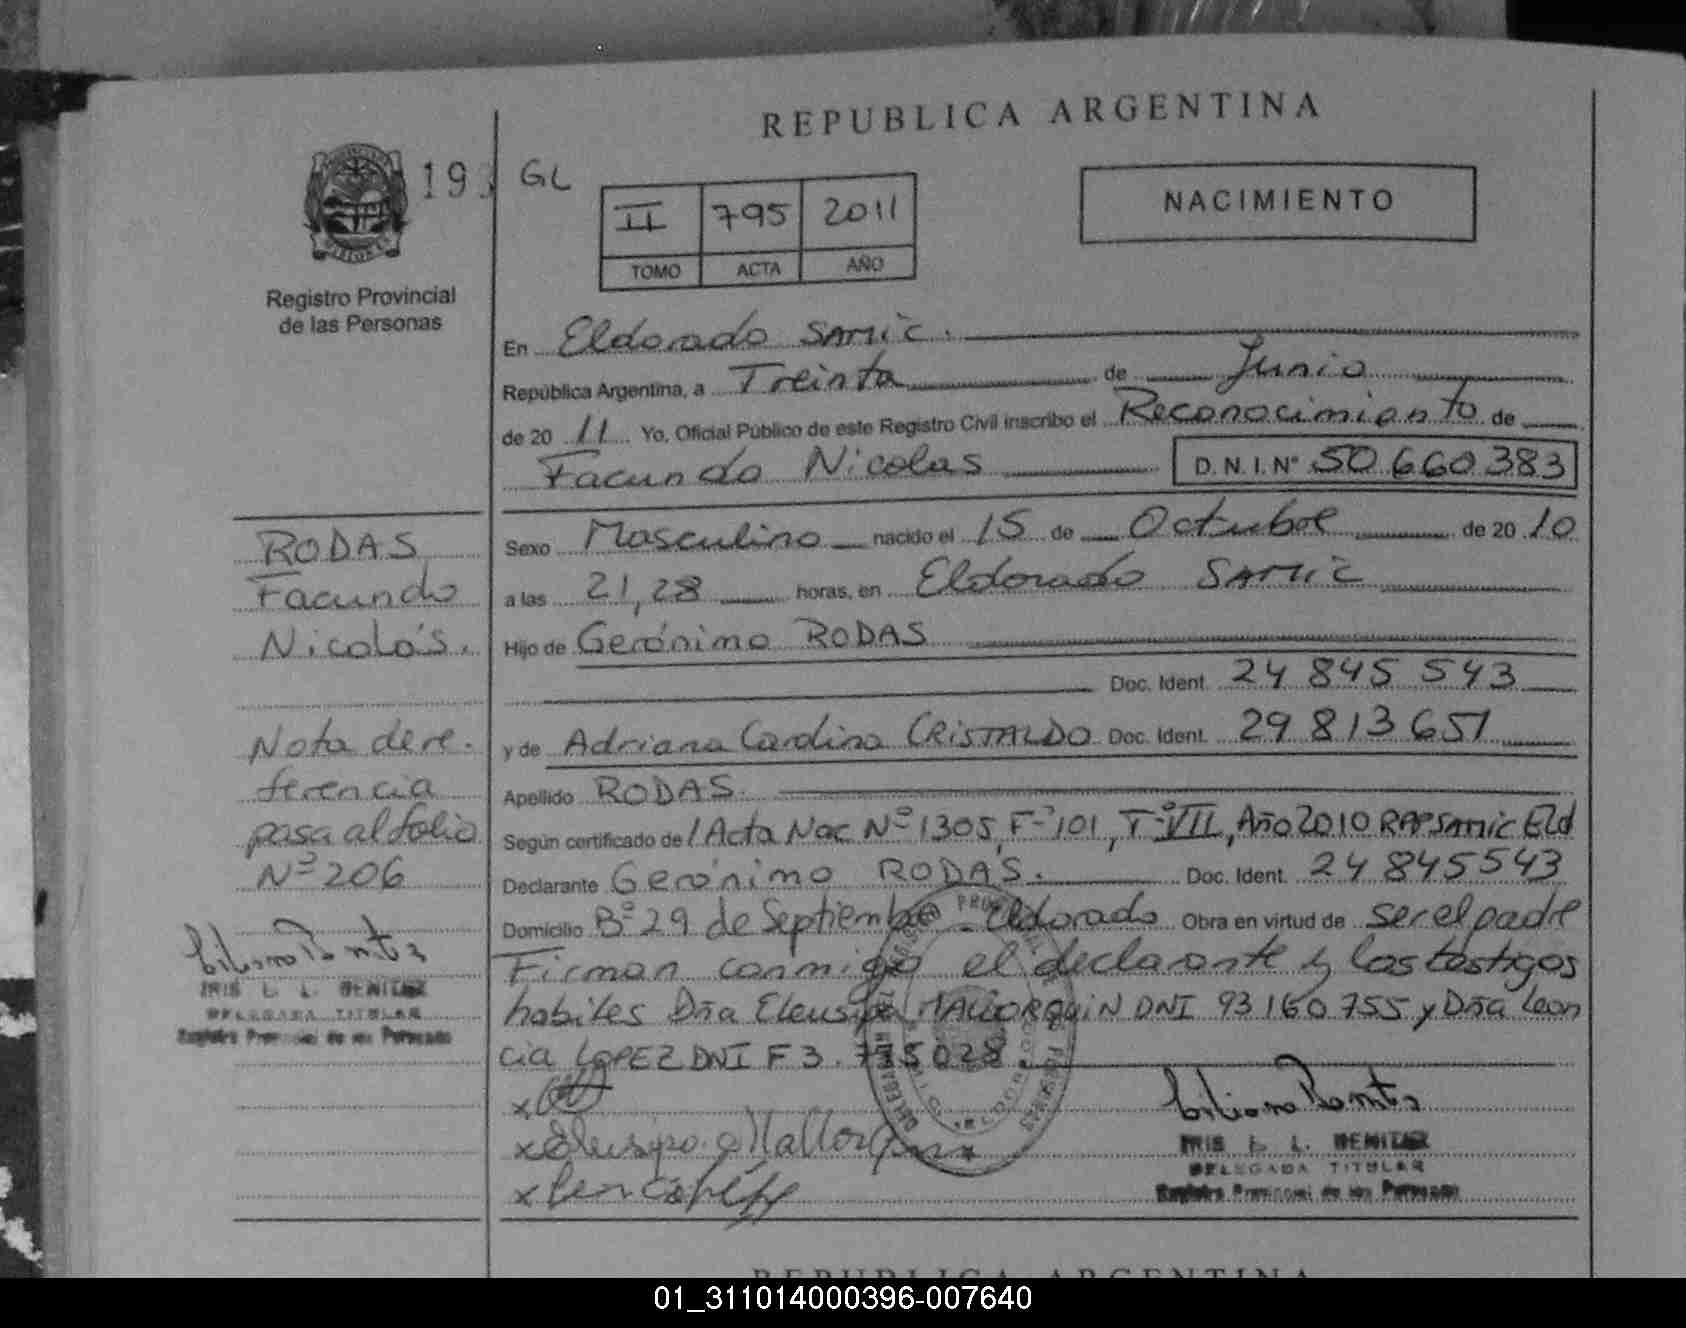 REPUBLICA ARGENTINA
193 GL
NACIMIENTO
II 795 2011
TOMO ACTA AÑO
Registro Provincial
de las Personas
En Eldorado SAMIC.
República Argentina, a Treinta de Junio
de 20 11 Yo, Oficial Público de este Registro Civil inscribo el Reconocimiento de
Facundo Nicolas D.N.I. Nº 50 660 383
RODAS
Facundo
Nicolás.
Nota de re-
ferencia
pasa al folio
Nº 206
IRIS L. L. BENITEZ
DELEGADA TITULAR
Registro Provincial de las Personas
Sexo Masculino nacido el 15 de Octubre de 20 10
a las 21,28 horas, en Eldorado SAMIC
Hijo de Gerónimo RODAS
Doc. Ident. 24 845 543
y de Adriana Carolina CRISTALDO Doc. Ident. 29 813 651
Apellido RODAS.
Según certificado de / Acta Nac Nº 1305, Fº 101, Tº VII, Año 2010 RAP SAMIC Eld
Declarante Gerónimo RODAS. Doc. Ident. 24 845543
Domicilio Bº 29 de Septiembre - Eldorado Obra en virtud de ser el padre
Firman conmigo el declarante y las testigos
habiles Dña Eleusipa MALLORQUIN DNI 93 160 755 y Dña Leon
cia LOPEZ DNI F 3. 028
x
x Eleusipa Mallorquin
x
IRIS L. L. BENITEZ
DELEGADA TITULAR
Registro Provincial de las Personas
REPUBLICA ARGENTINA
01_311014000396-007640